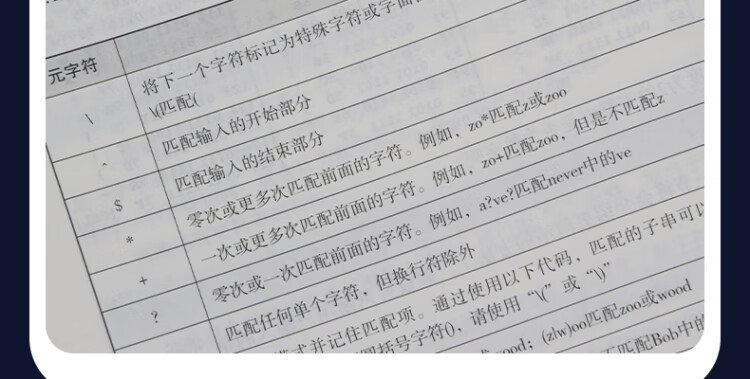 元字符
\ 将下一个字符标记为特殊字符或字面
\(匹配(
^ 匹配输入的开始部分
$ 匹配输入的结束部分
* 零次或更多次匹配前面的字符。例如，zo*匹配z或zoo
+ 一次或更多次匹配前面的字符。例如，zo+匹配zoo，但是不匹配z
? 零次或一次匹配前面的字符。例如，a?ve?匹配never中的ve
匹配任何单个字符，但换行符除外
模式并记住匹配项。通过使用以下代码，匹配的子串可以
括号字符()，请使用“\(”或“\)”
ood；(z|w)oo匹配zoo或wood
不匹配Bob中的